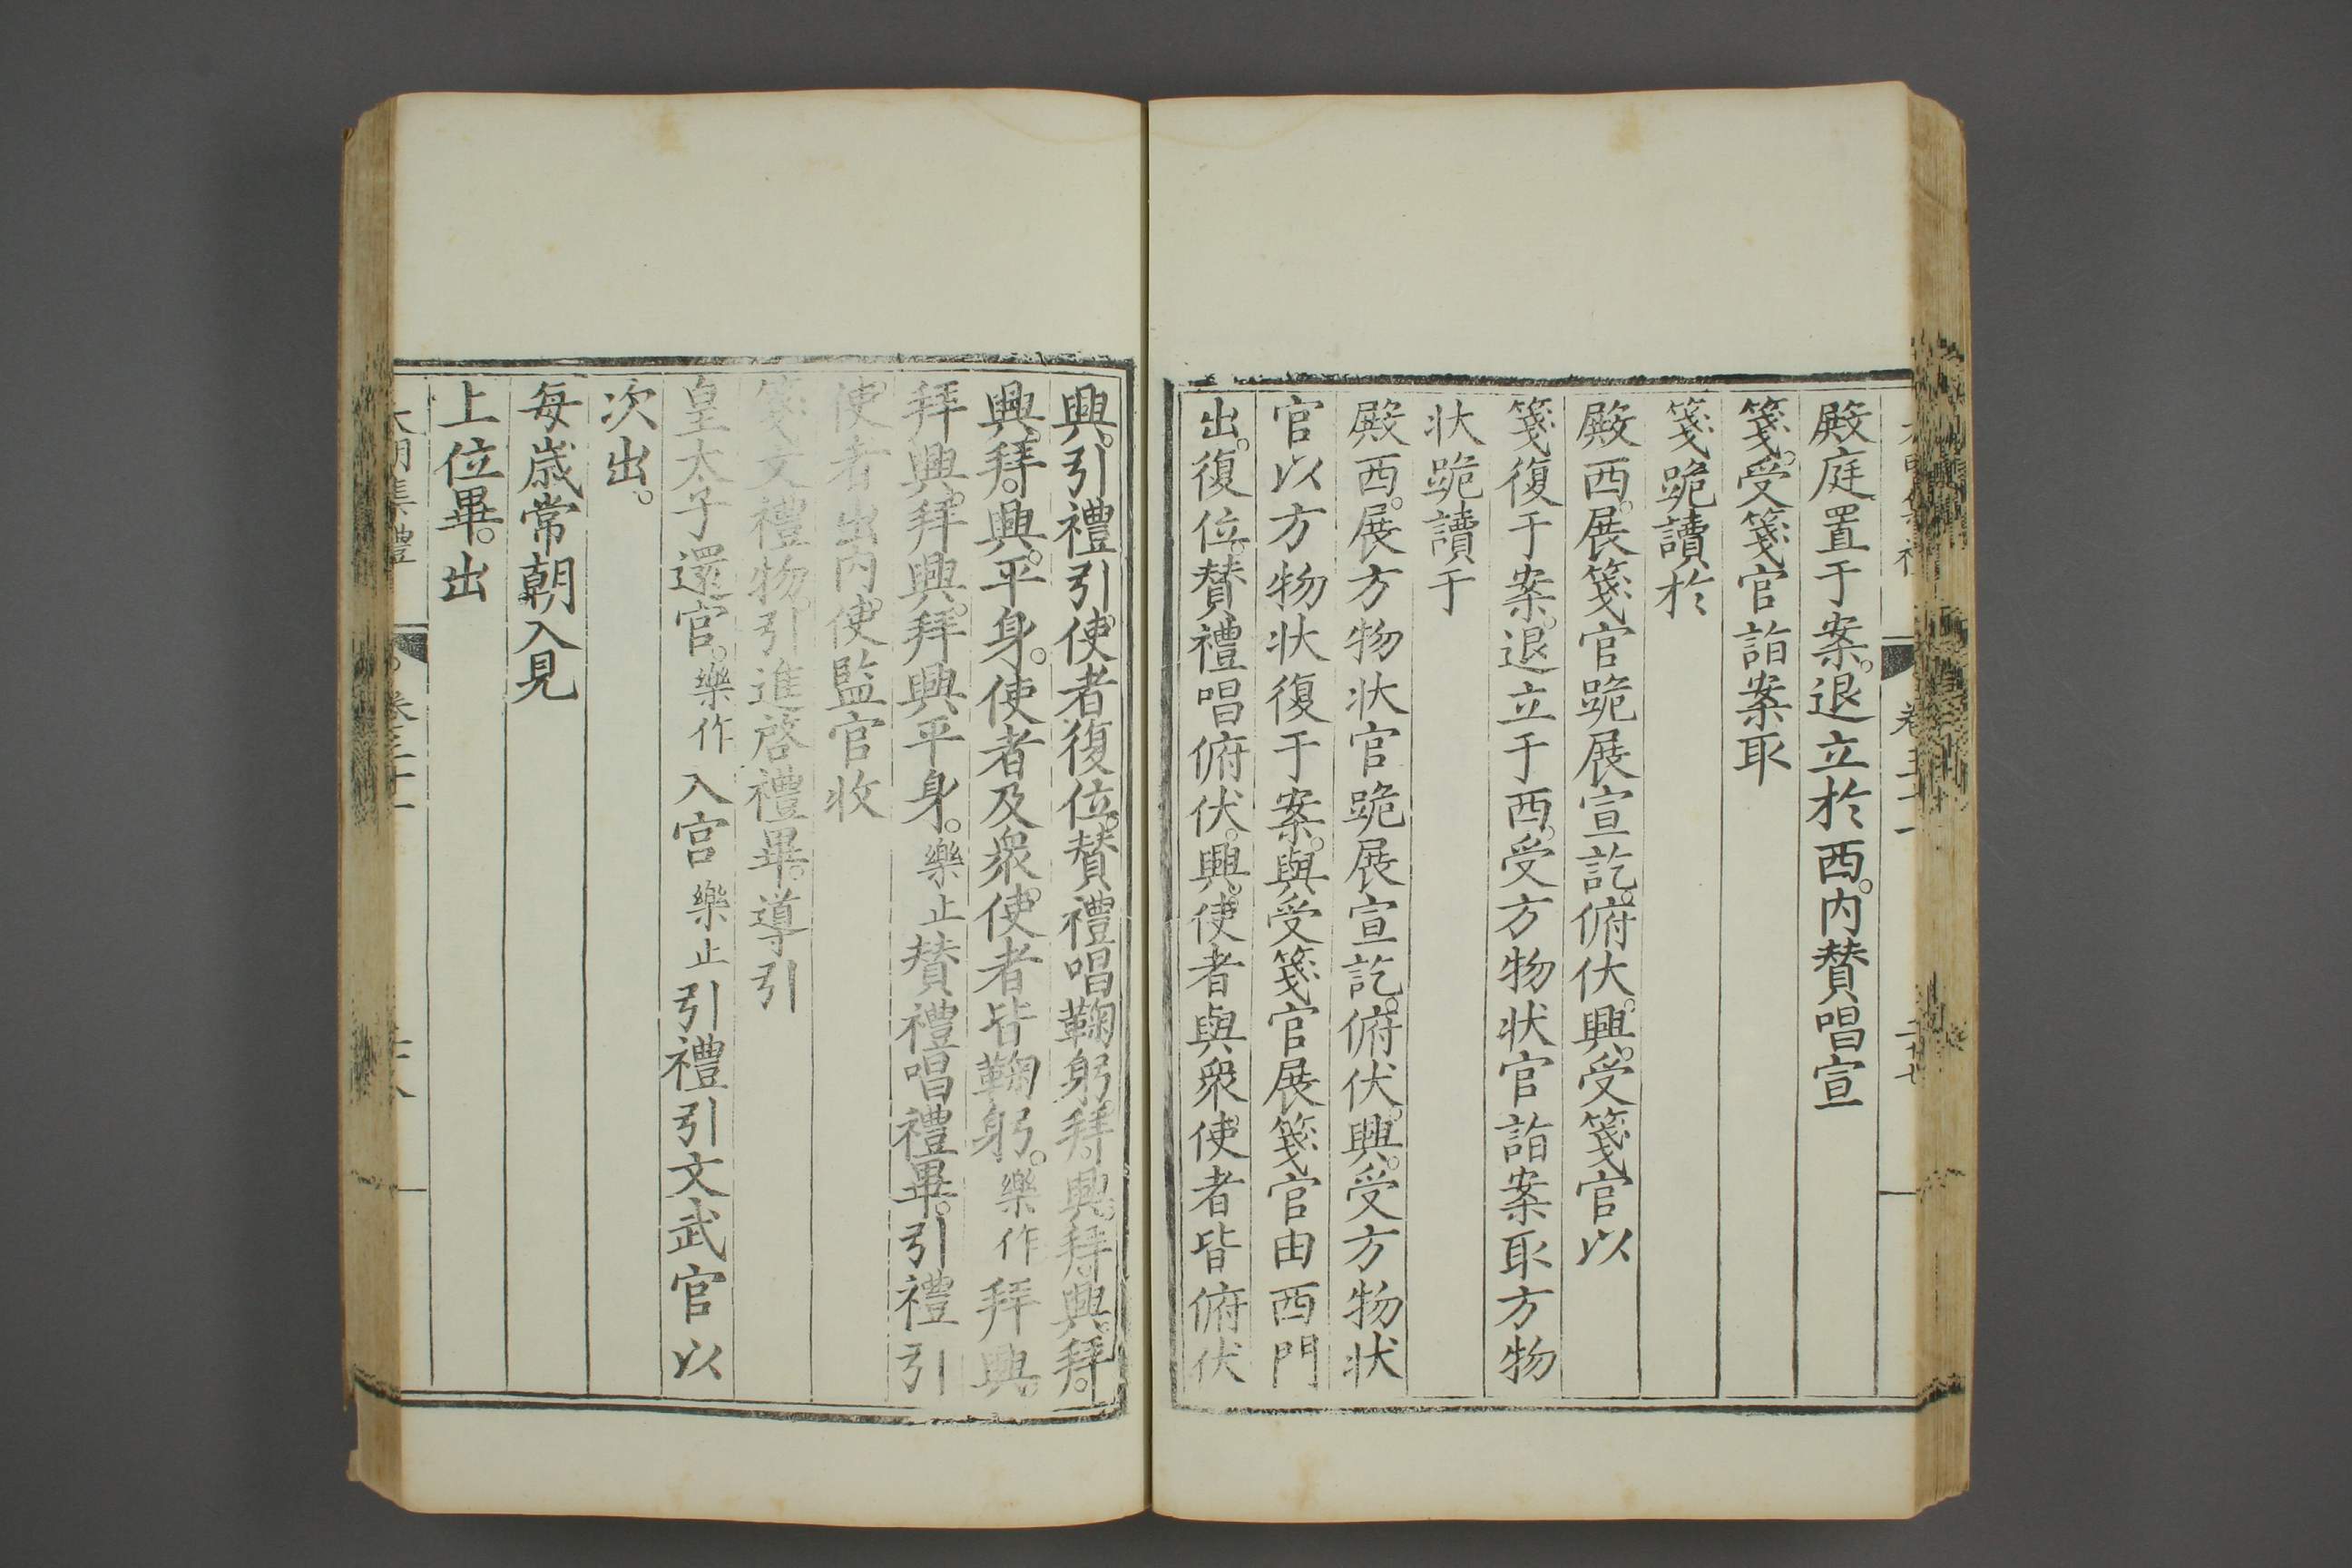 殿庭置于案。退立於西。内賛唱宣
箋。受箋官詣案取
箋跪讀於
殿西。展箋官跪展宣訖。俯伏。興。受箋官以
箋復于案。退立于西。受方物状官詣案取方物
状跪讀于
殿西。展方物状官跪展宣訖。俯伏。興。受方物状
官以方物状復于案。與受箋官展箋官由西門
出。復位。賛禮唱俯伏。興。使者與衆使者皆俯伏
興。引禮引使者復位。賛禮唱鞠躬。拜。興。拜。興。拜。
興。拜。興。平身。使者及衆使者皆鞠躬。樂作拜興。
拜興。拜興。拜興平身。樂止賛禮唱禮畢。引禮引
使者出内。使監官收
箋文禮物。引進啓禮畢。導引
皇太子還宫。樂作入宫樂止引禮引文武官以
次出。
每歲常朝入見
上位畢。出
大明集禮 卷三十一 二十八